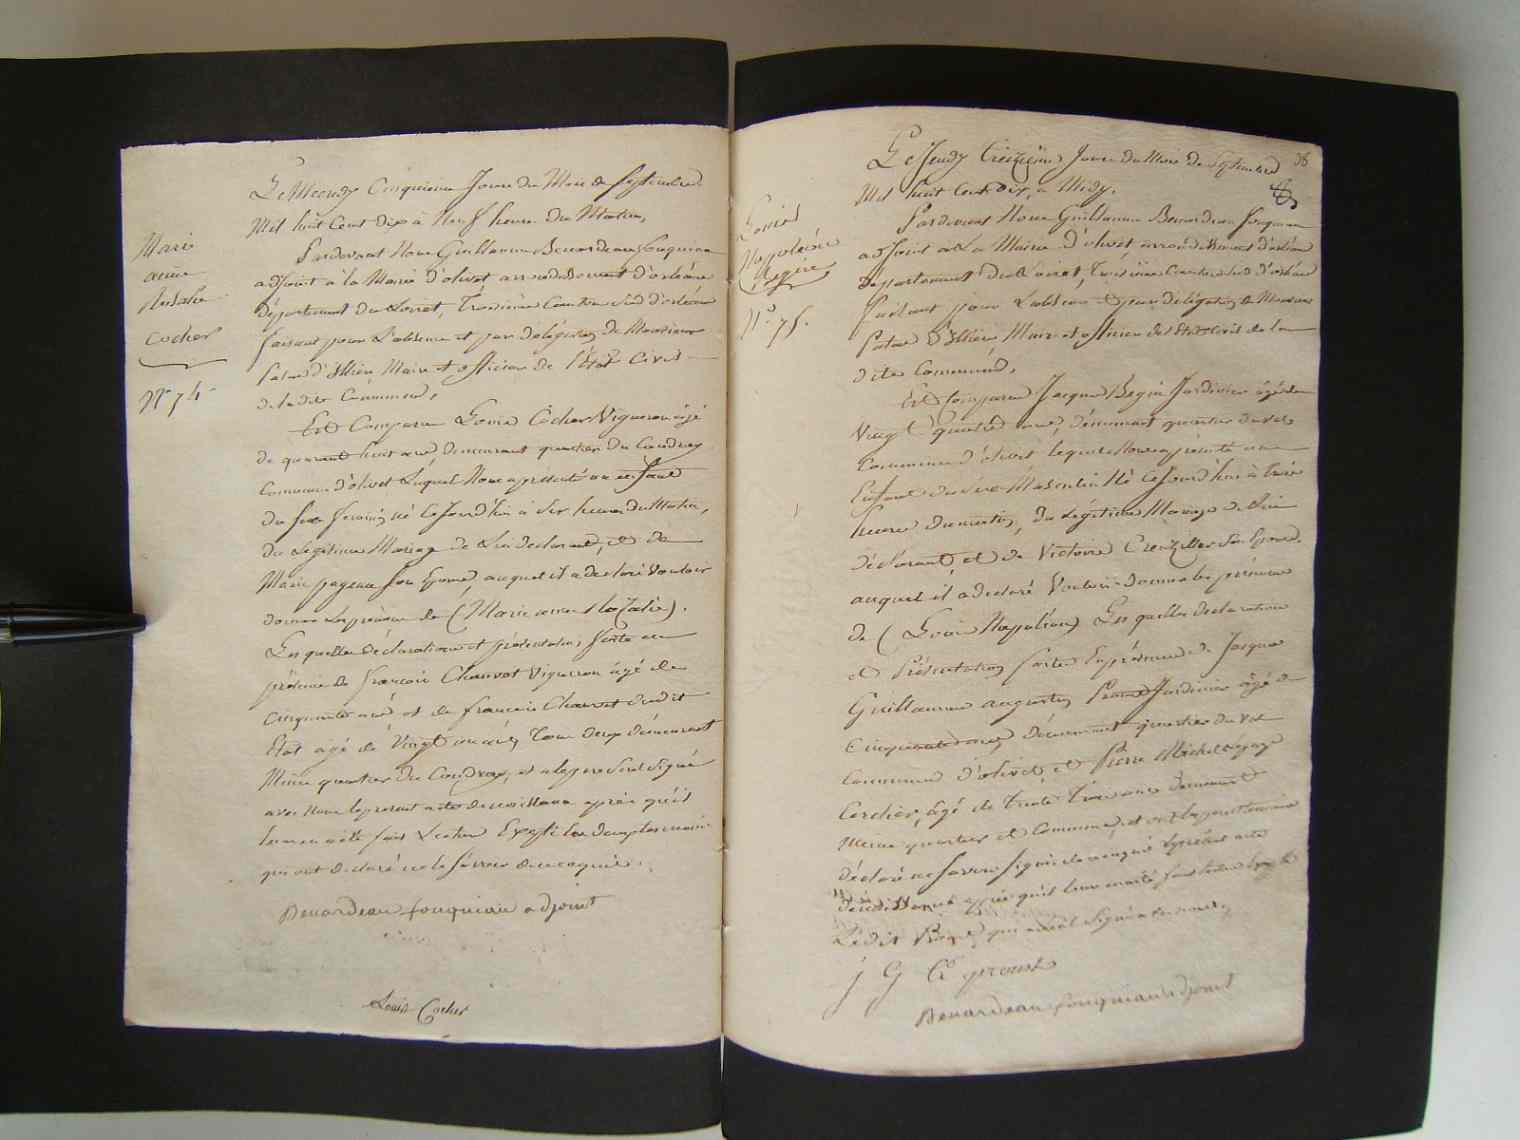 Marie
anne
Rosalie
Cocher
N° 74
Le Mecredy Cinquieme Jour du Mois de Septembre
Mil huit Cent dix à Neuf heure du Matin,
Pardevant Nous Guillaume Benardeau fouqueau
adjoint à la Mairie d'olivet arrondissement d'orléans
département du Loiret,
faisant pour L'absence et par délégation de Monsieur
Maire et officier de l'état Civil
de la dite Commune,
Est Comparu Louis Cocher Vigneron âgé
de quarante huit ans, demeurant quartier du Coudray
Commune d'olivet Lequel Nous a présenté un enfant
du Sexe feminin né Cejourd'hui à Six heures du Matin,
du Légitime Mariage de Lui déclarant, et de
Marie pageau Son Epouse, auquel il a déclaré Vouloir
donner Les prénoms de (Marie anne Rosalie).
Les quelles déclarations et présentation faite en
présence de françois Chauvet Vigneron âgé de
Cinquante ans et de françois Chauvet dudit
Etat âgé de Vingt ans, Tous deux demeurant
Même quartier du Coudray, et a le pere Seul Signé
avec Nous le present acte de naissance après qu'il
leur en a été fait Lecture Excepté les temoins
qui ont déclaré ne le Sçavoir de ce enquis.
Benardeau fouqueau adjoint
Louis Cocher
38
Louis
Napoléon
Begin
N° 75.
Le Jeudy treizieme Jour du Mois de Septembre
Mil huit Cent dix, à Midy.
Pardevant Nous Guillaume Benardeau fouqueau
adjoint à La Mairie d'olivet, arrondissement d'orléans
département du Loiret,
faisant pour L'absence et par délégation de Monsieur
Maire et officier de l'état Civil de la
dite Commune,
Est Comparu Jacques Begin Jardinier âgé de
Vingt quatre ans, demeurant quartier du val
Commune d'olivet lequel Nous a présenté un
Enfant du Sexe Masculin Né Cejourd'hui à trois
heures du matin, du Légitime Mariage de Lui
déclarant, et de Victoire Son Epouse.
auquel il a déclaré Vouloir donner les prénoms
de (Louis Napoléon) Les quelles declaration
et Présentation faites En présence de Jacques
Guillaume augustin Jardinier âgé de
Cinquante ans, demeurant quartier du val
Commune d'olivet, et Pierre Michel
Cerclier, âgé de trente Trois ans demeurant
Même quartier et Commune, et ont
déclaré ne Savoir Signer le present acte
de naissance après qu'il leur en a été fait lecture
Ledit qui a Signé avec nous,
J G a proust
Benardeau fouqueau adjoint